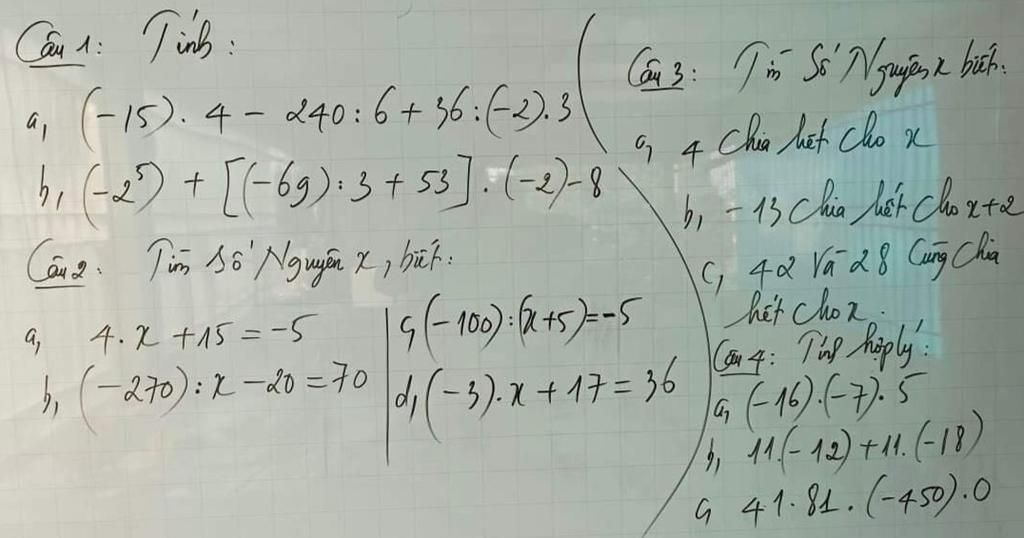 Câu 1: Tính:
a, (-15). 4 - 240:6 + 36:(-2).3
b, (-2⁵) + [(-69):3 + 53]. (-2)-8
Câu 2: Tìm Số Nguyên x, biết:
a, 4. x + 15 = -5
b, (-270): x - 20 = 70
c, (-100):(x+5)=-5
d, (-3). x + 17 = 36
Câu 3: Tìm Số Nguyên x biết:
a, 4 chia hết cho x
b, -13 chia hết cho x+2
c, 42 và 28 cùng chia
hết cho x.
Câu 4: Tính hợp lý:
a, (-16).(-7). 5
b, 11.(-12) + 11. (-18)
c, 41. 81. (-450). 0